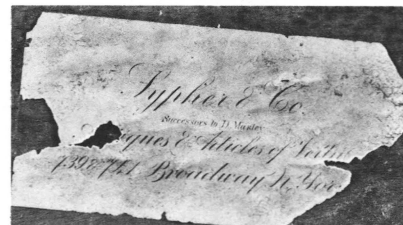 Sypher & Co
Successors to D. Marley
ques & Articles of
739 & 741 Broadway N. Yor